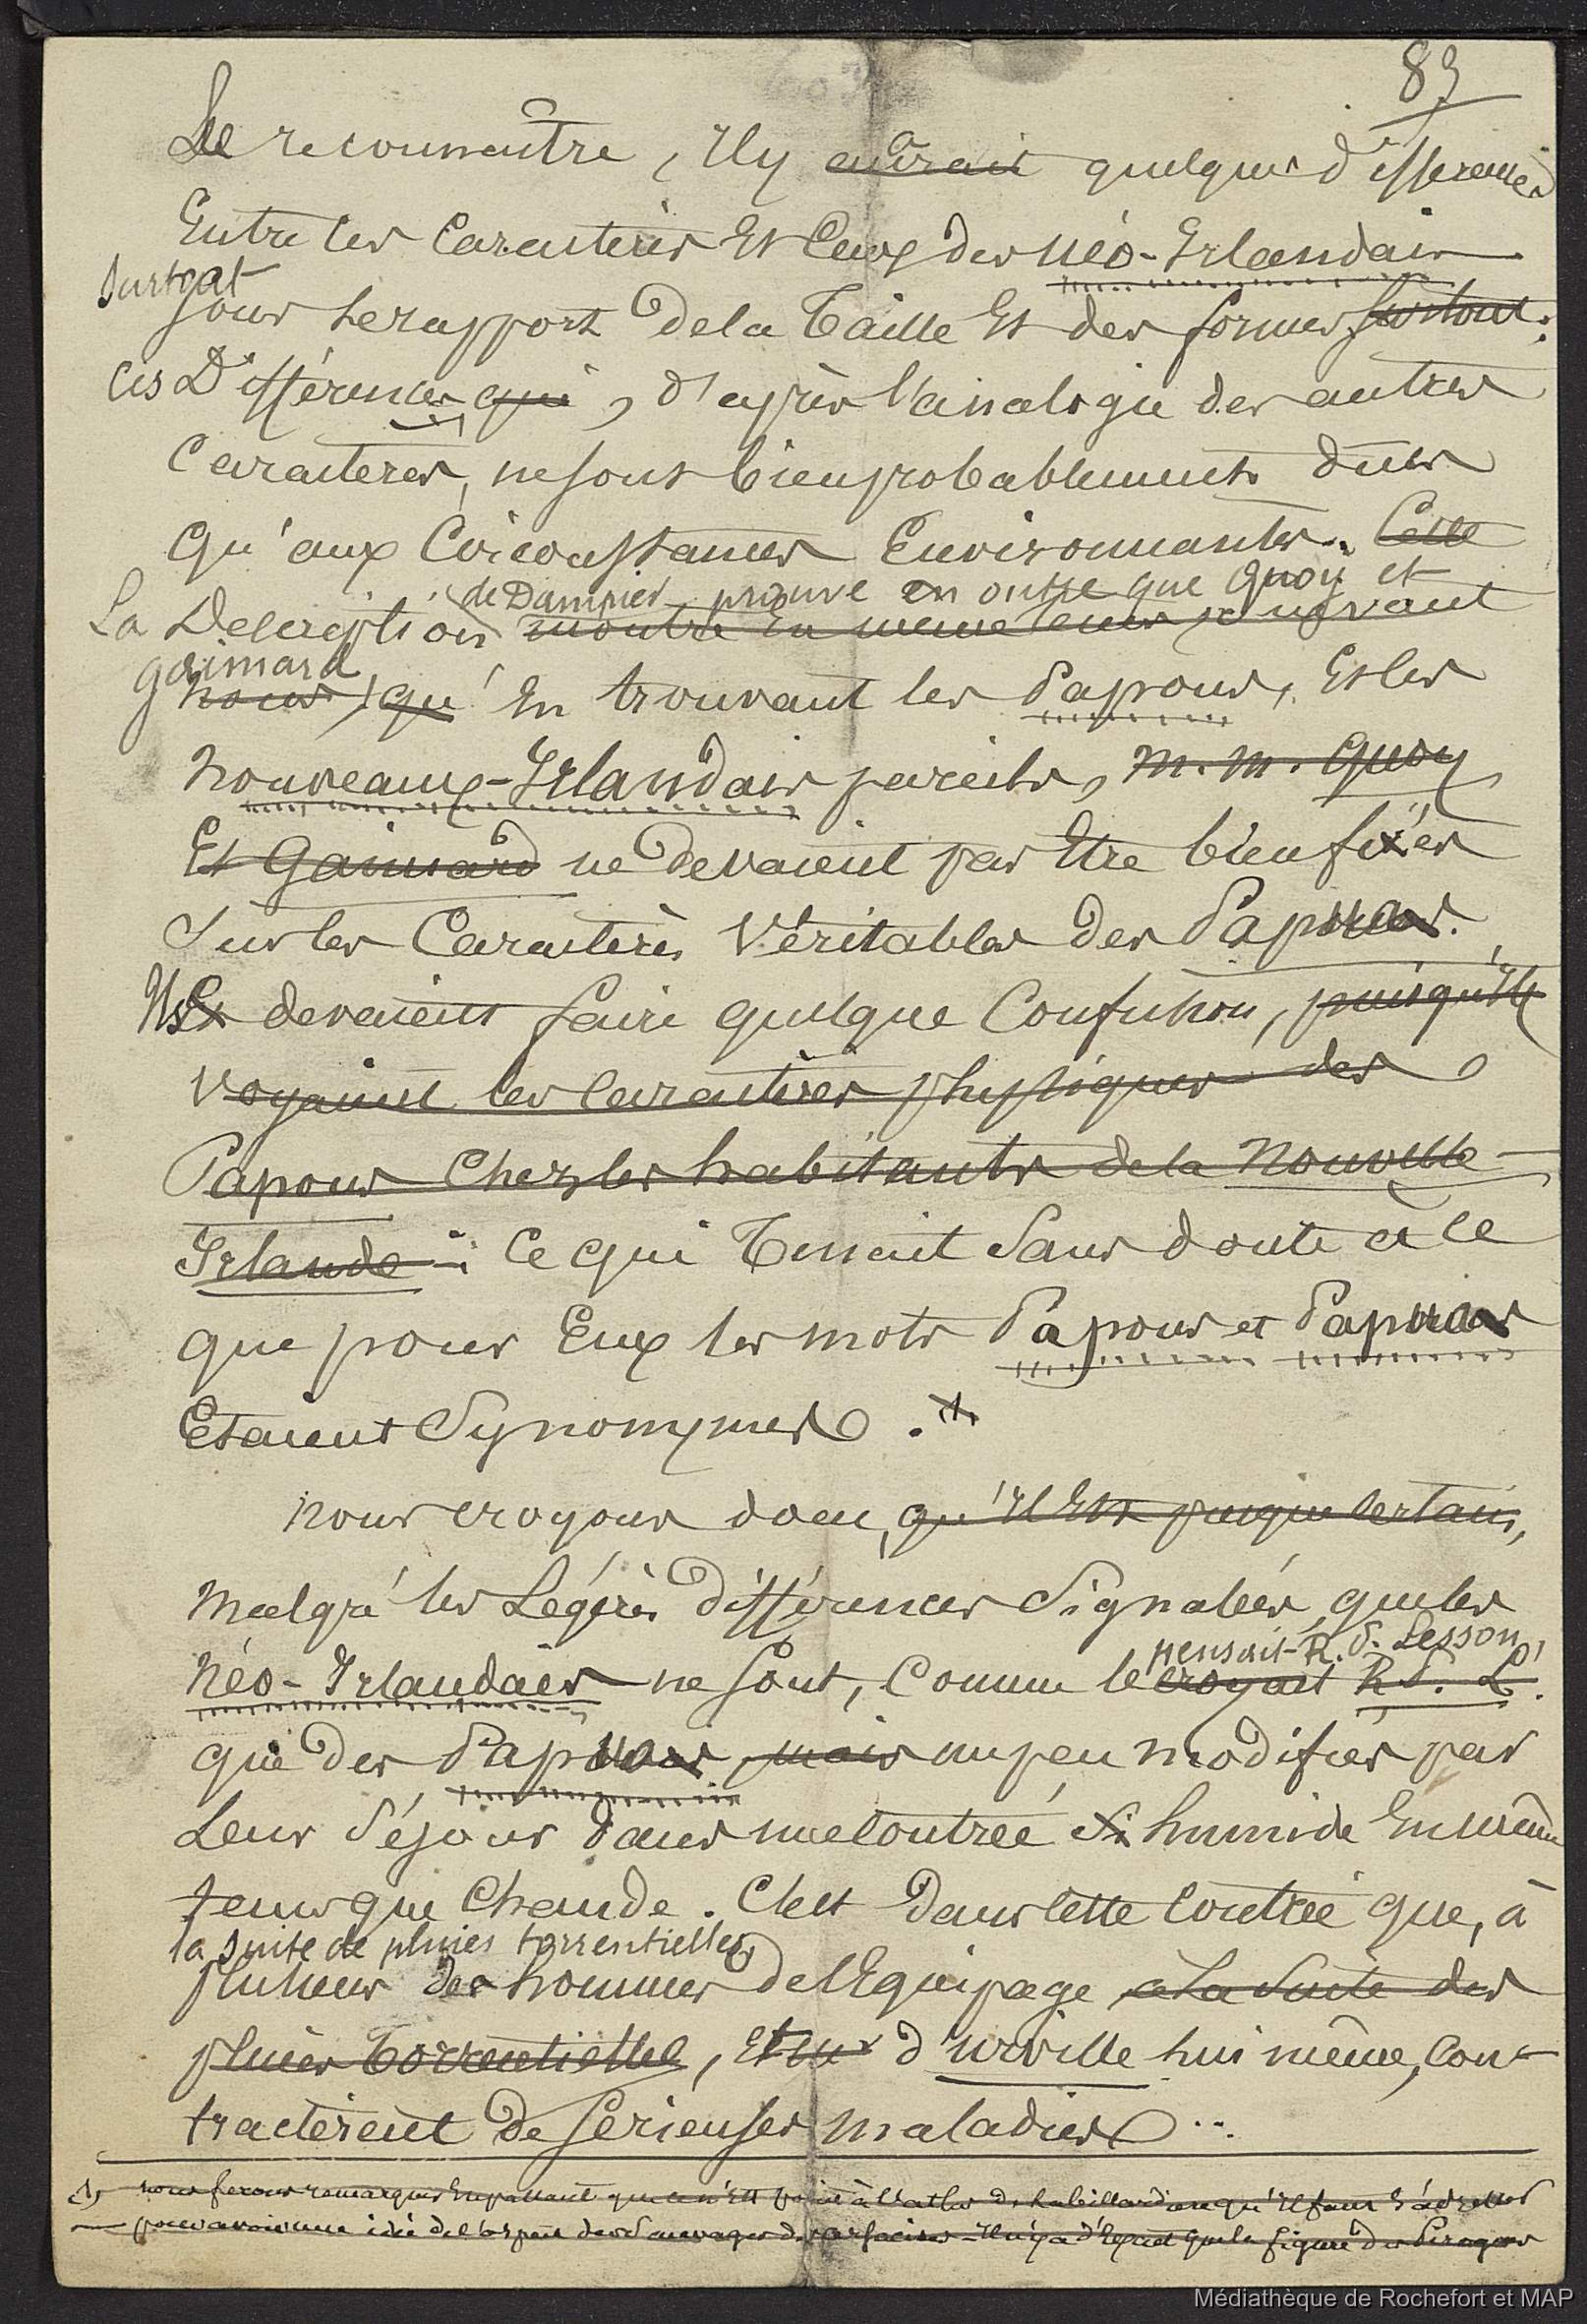 83
Le reconnaitre, Il y a aurait quelques différences
Entre les Caracteres Et Ceux des néo-Irlandais
Surtout
sous le rapport de la Taille Et des formes surtout:
ces Différences qui, d'après l'analogie des autres
Caracteres, ne sont bien probablement dues
qu'aux Circonstances Environnantes. Cette
de Dampier prouve en outre que Quoy et
La Description montre En meme tems, suivant
Gaimard
nous, qu' En trouvant les Papous, Et les
nouveaux-Irlandais pareils, M. M. Quoy
Et Gaimard ne devaient pas Etre bien fixés
Sur les Caractères Véritables des Papuas.
Ils devaient faire quelque Confusion, puisqu'ils
voyaient les Caractères physiques des
Papous Chez les habitants de la Nouvelle
Irlande: Ce qui Tenait Sans doute à ce
que pour Eux les mots Papous et Papuas
Etaient Synonymes. (1)
nous croyons donc, qu'il Est presque certain,
malgré les Légères différences Signalées, que les
pensait R. P. Lesson,
Néo-Irlandais ne sont, Comme le croyait R. P. L.
que des Papuas, mais un peu modifiés par
Leur Séjour dans une Contrée si humide En même
tems que Chaude. C'est dans cette Contrée que, à
la suite de pluies torrentielles
plusieurs des hommes de l'Equipage à la Suite des
pluies Torrentielles, Et d'urville lui même, con-
tractèrent de Serieuses maladies..
(1) nous ferons remarquer En passant que ce n'est point à l'atlas de Labillardière qu'il faut s'adresser
pour avoir une idée de l'aspect des Sauvages de Il n'y a d'Exact que la figure des Pirogues
Médiathèque de Rochefort et MAP